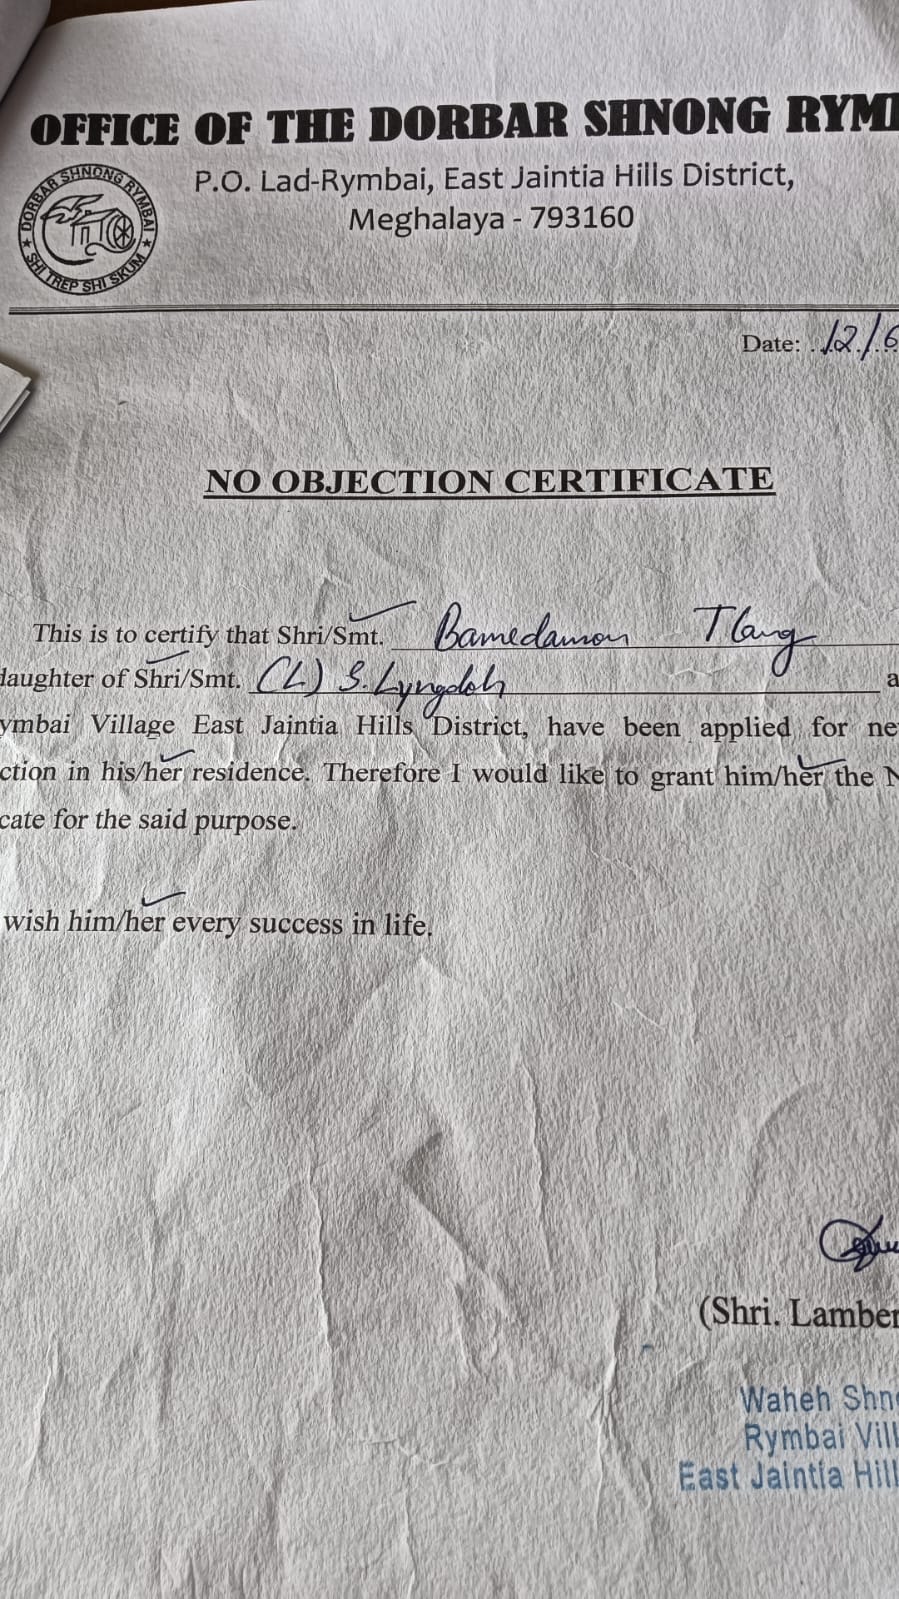 OFFICE OF THE DORBAR SHNONG RYMB
DORBAR SHNONG RYMBAI
SHI TREP SHI SKUM
P.O. Lad-Rymbai, East Jaintia Hills District,
Meghalaya - 793160
Date: 12/6
NO OBJECTION CERTIFICATE
This is to certify that Shri/Smt. Bamedamon Tlang
daughter of Shri/Smt. (L) S. Lyngdoh a
ymbai Village East Jaintia Hills District, have been applied for ne
ction in his/her residence. Therefore I would like to grant him/her the N
cate for the said purpose.
wish him/her every success in life.
(Shri. Lamber
Waheh Shno
Rymbai Vill
East Jaintia Hill